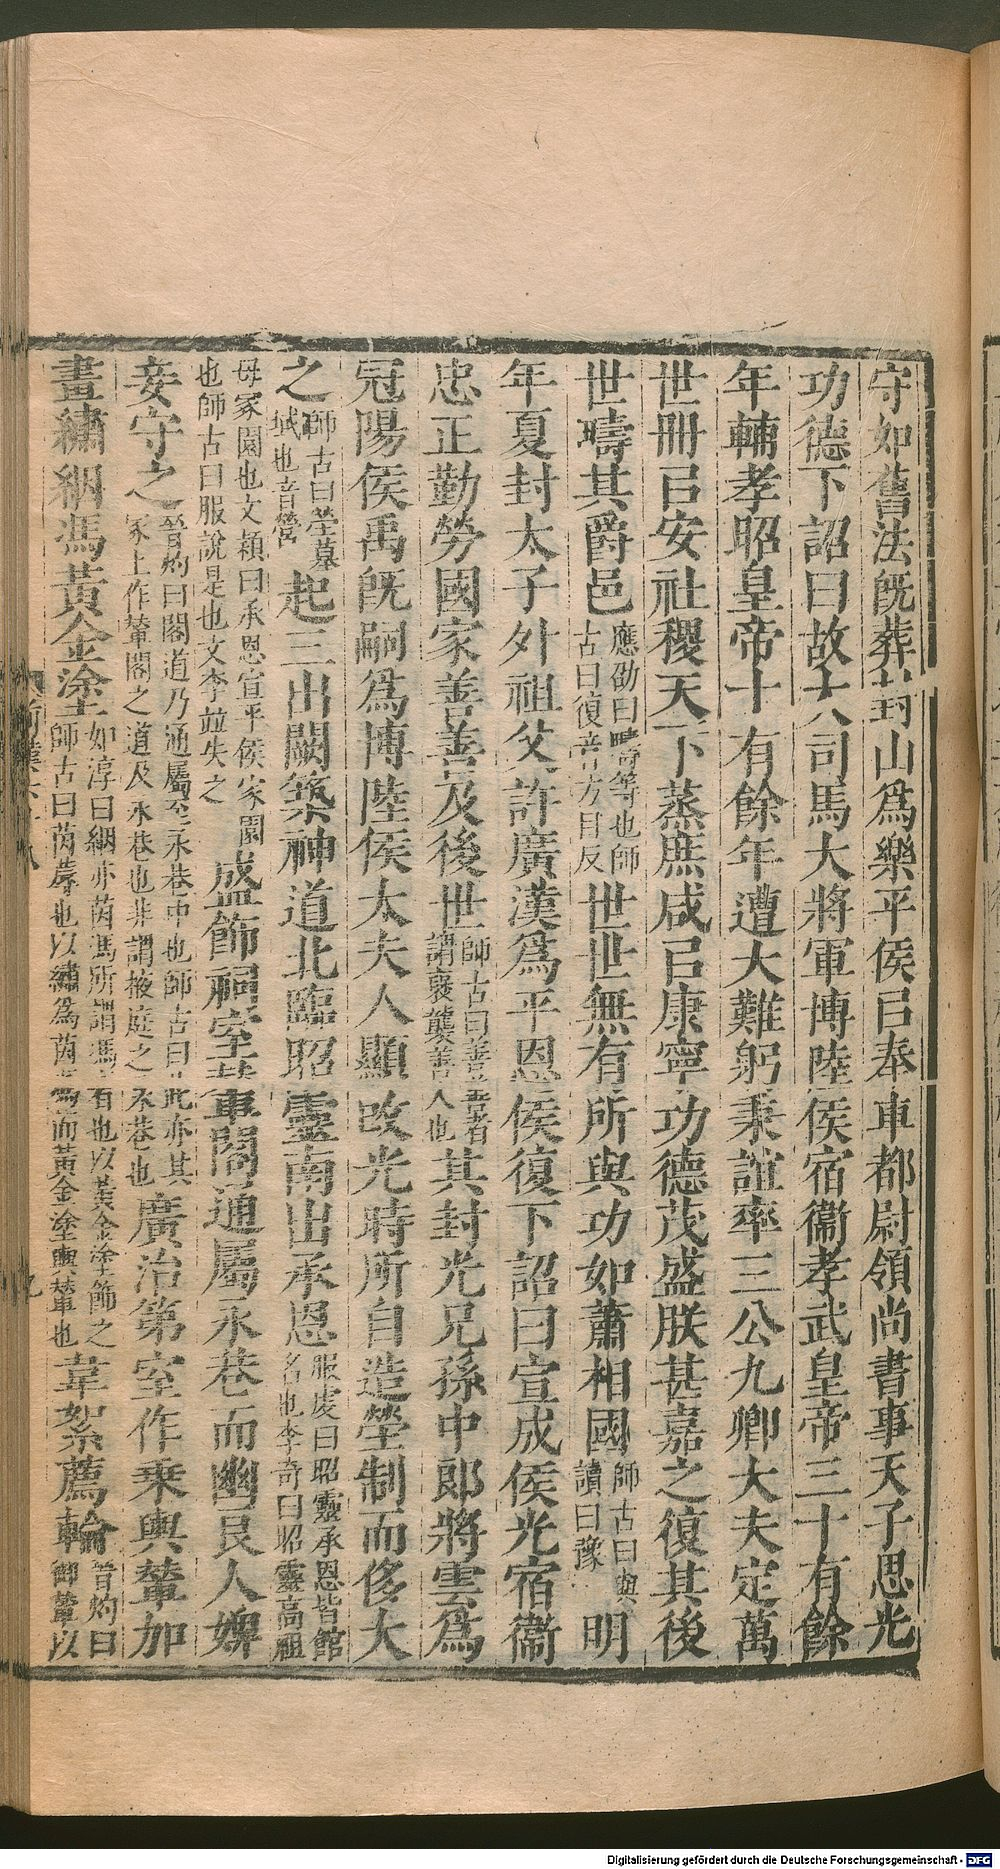 守如舊法旣葬封山爲樂平侯㠯奉車都尉領尚書事天子思光
功德下詔曰故大司馬大將軍博陸侯宿衞孝武皇帝三十有餘
年輔孝昭皇帝十有餘年遭大難躬秉誼率三公九卿大夫定萬
世冊㠯安社稷天下蒸庶咸㠯康寧功德茂盛朕甚嘉之復其後
世疇其爵邑應劭曰疇等也師古曰復音方目反世世無有所與功如蕭相國師古曰與讀曰豫明
年夏封太子外祖父許廣漢爲平恩侯復下詔曰宣成侯光宿衞
忠正勤勞國家善善及後世師古曰善善者謂襃襲善人也其封光兄孫中郎將雲爲
冠陽侯禹旣嗣爲博陸侯太夫人顯改光時所自造塋制而侈大
之師古曰塋墓域也音營起三出闕築神道北臨昭靈南出承恩服虔曰昭靈承恩皆館名也李奇曰昭靈高祖
母冢園也文穎曰承恩宣平侯冢園也師古曰服說是也文李並失之盛飾祠室輦閣通屬永巷而幽良人婢
妾守之晉灼曰閣道乃通屬至永巷中也師古曰此亦其冢上作輦閣之道及永巷也非謂掖庭之永巷也廣治第室作乘輿輦加
畫繡絪馮黃金塗如淳曰絪亦茵馮所謂馮者也以黃金塗飾之師古曰茵蓐也以繡爲茵馮而黃金塗輿輦也韋絮薦輪晉灼曰御輦以
Digitalisierung gefördert durch die Deutsche Forschungsgemeinschaft - DFG